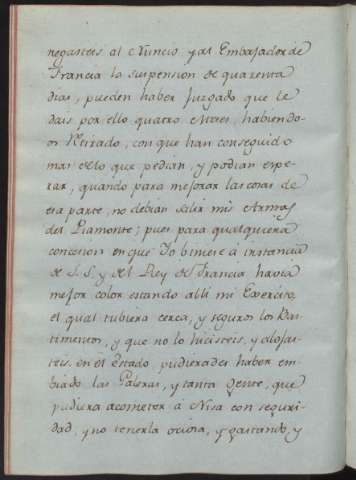 negasteis al Nuncio y al Embajador de
Francia la suspension de quarenta
dias, pueden haber juzgado que le
dais por ello quatro Meses, habiendo
os Retirado, con que han conseguido
mas de lo que pedian, y podian espe
rar, quando para mejorar las cosas de
esa parte, no debian salir mis Armas
del Piamonte; pues para qualquiera
concesion en que Yo biniese á instancia
de S. S. y del Rey de Francia havia
mejor color estando alli mi Exercito,
el qual tubiera cerca, y seguros los Bas
timentos, y que no lo hicisteis, y alojas
teis en el Estado, pudierades haber em
biado las Galeras, y tanta Gente, que
pudiera acometer á Nisa con seguri
dad, y no tenerla ociosa, y gastando, y